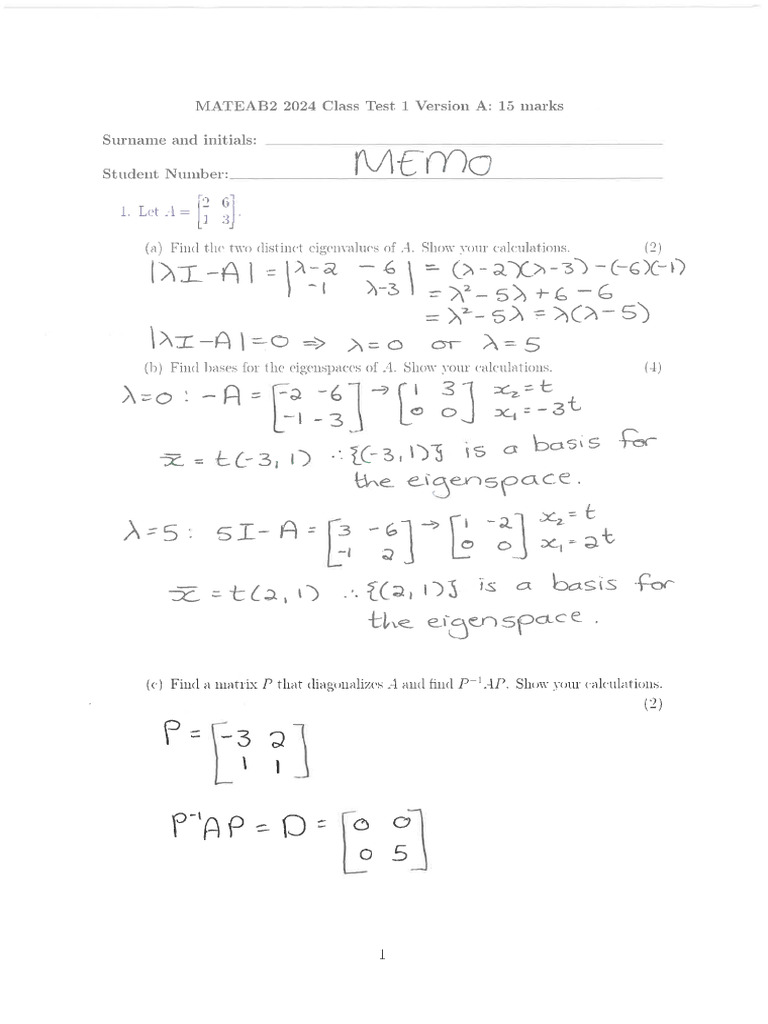 MATEAB2 2024 Class Test 1 Version A: 15 marks
Surname and initials:
Student Number: MEMO
1. Let A = [2 6; 1 3].
(a) Find the two distinct eigenvalues of A. Show your calculations. (2)
|λI-A| = |λ-2 -6; -1 λ-3| = (λ-2)(λ-3) - (-6)(-1)
= λ² - 5λ + 6 - 6
= λ² - 5λ = λ(λ-5)
|λI-A| = 0 ⇒ λ=0 or λ=5
(b) Find bases for the eigenspaces of A. Show your calculations. (4)
λ=0 : -A = [-2 -6; -1 -3] → [1 3; 0 0] x₂ = t
x₁ = -3t
x̄ = t(-3, 1) ∴ {(-3, 1)} is a basis for
the eigenspace.
λ=5 : 5I-A = [3 -6; -1 2] → [1 -2; 0 0] x₂ = t
x₁ = 2t
x̄ = t(2, 1) ∴ {(2, 1)} is a basis for
the eigenspace.
(c) Find a matrix P that diagonalizes A and find P⁻¹AP. Show your calculations.
(2)
P = [-3 2; 1 1]
P⁻¹AP = D = [0 0; 0 5]
1